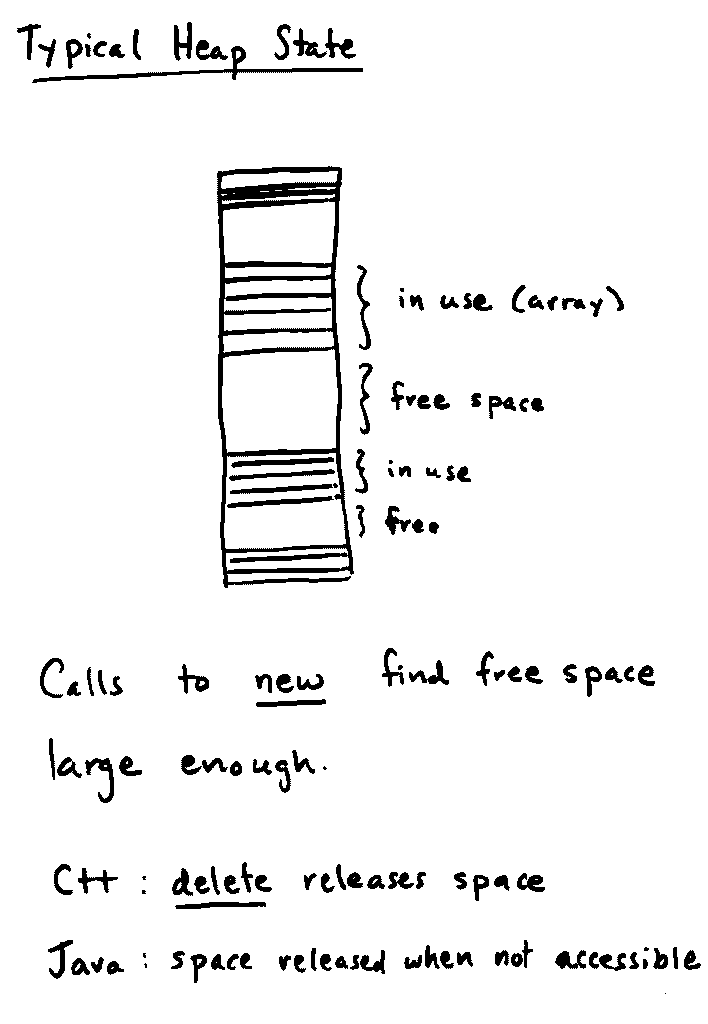 Typical Heap State
in use (array)
free space
in use
free
Calls to new find free space
large enough.
C++ : delete releases space
Java : space released when not accessible